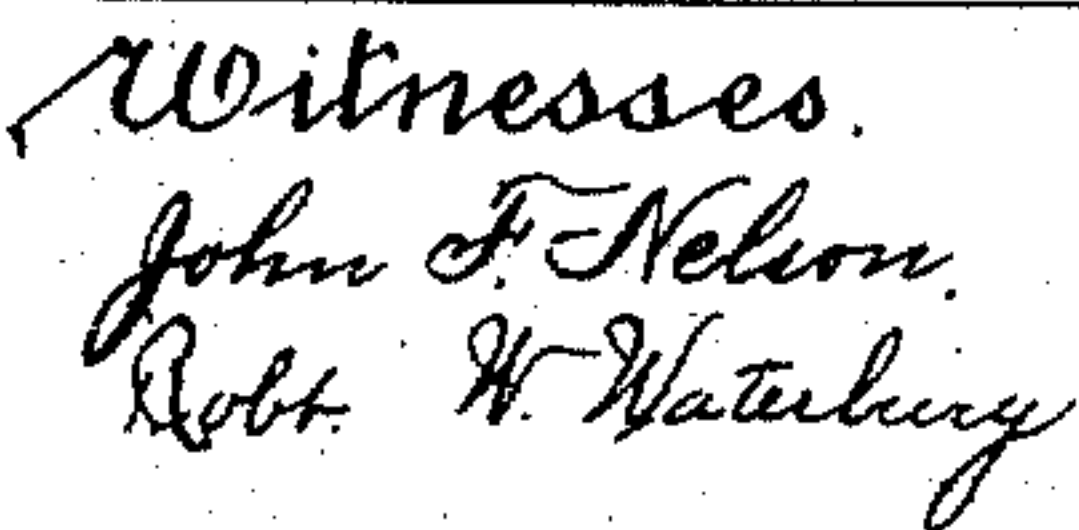 Witnesses.
John F. Nelson.
Robt. W. Waterbury